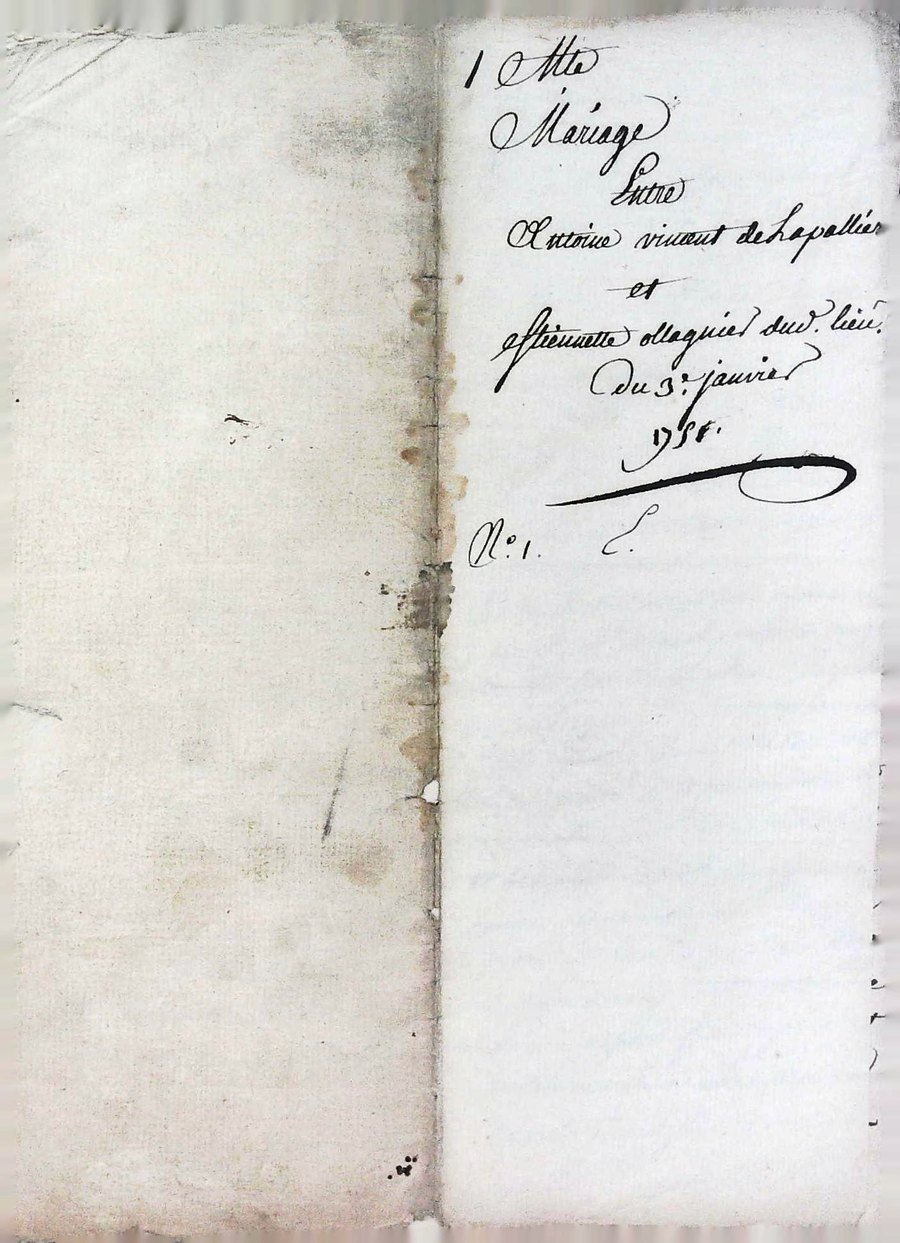 1 Mte
Mariage
Entre
Antoine vincent de Lapallier
et
Estiennette ollagnier dud. lieu.
Du 3e. janvier
N°. 1. E.